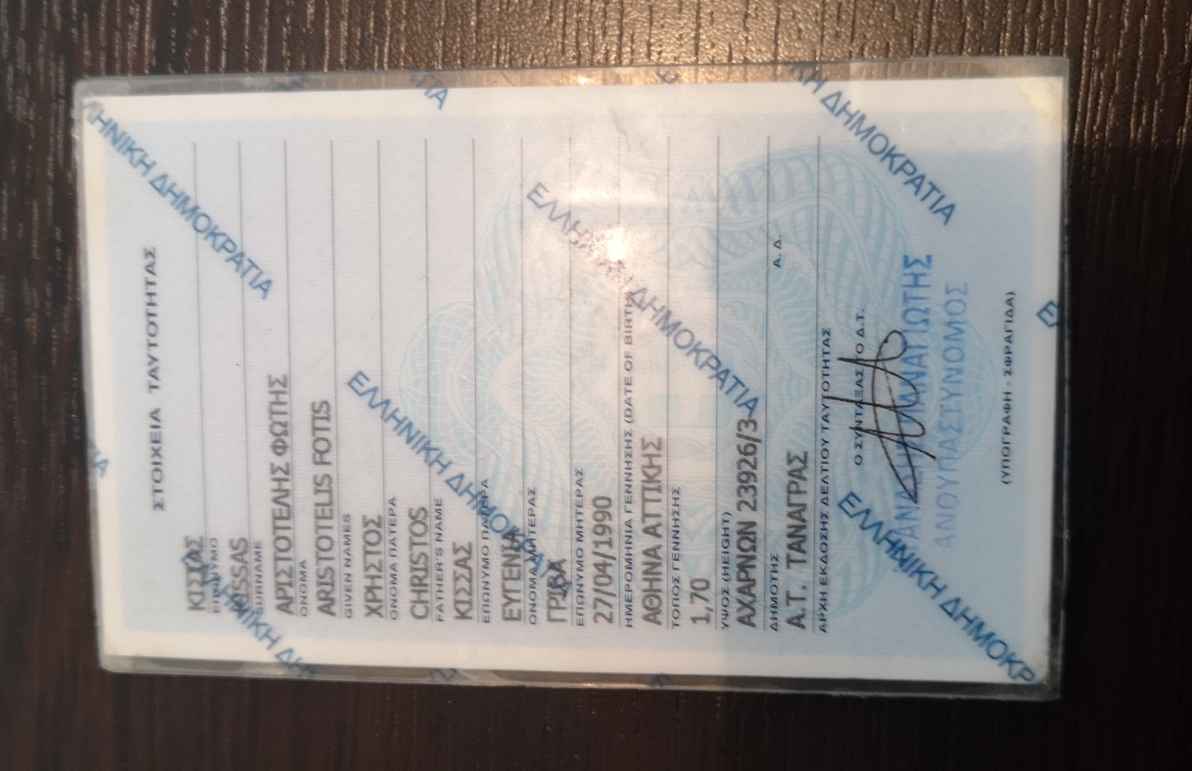 ΣΤΟΙΧΕΙΑ ΤΑΥΤΟΤΗΤΑΣ
ΚΙΣΣΑΣ
ΕΠΩΝΥΜΟ
KISSAS
SURNAME
ΑΡΙΣΤΟΤΕΛΗΣ ΦΩΤΗΣ
ΟΝΟΜΑ
ARISTOTELIS FOTIS
GIVEN NAMES
ΧΡΗΣΤΟΣ
ΟΝΟΜΑ ΠΑΤΕΡΑ
CHRISTOS
FATHER'S NAME
ΚΙΣΣΑΣ
ΕΠΩΝΥΜΟ ΠΑΤΕΡΑ
ΕΥΓΕΝΙΑ
ΟΝΟΜΑ ΜΗΤΕΡΑΣ
ΓΡΙΒΑ
ΕΠΩΝΥΜΟ ΜΗΤΕΡΑΣ
27/04/1990
ΗΜΕΡΟΜΗΝΙΑ ΓΕΝΝΗΣΗΣ (DATE OF BIRTH)
ΑΘΗΝΑ ΑΤΤΙΚΗΣ
ΤΟΠΟΣ ΓΕΝΝΗΣΗΣ
1,70
ΥΨΟΣ (HEIGHT)
ΑΧΑΡΝΩΝ 23926/3
ΔΗΜΟΤΗΣ Α. Δ.
Α.Τ. ΤΑΝΑΓΡΑΣ
ΑΡΧΗ ΕΚΔΟΣΗΣ ΔΕΛΤΙΟΥ ΤΑΥΤΟΤΗΤΑΣ
Ο ΣΥΝΤΑΞΑΣ ΤΟ Δ.Τ.
ΠΑΝΑΓΙΩΤΗΣ
ΑΝΘΥΠΑΣΤΥΝΟΜΟΣ
(ΥΠΟΓΡΑΦΗ - ΣΦΡΑΓΙΔΑ)
ΕΛΛΗΝΙΚΗ ΔΗΜΟΚΡΑΤΙΑ
ΕΛΛΗΝΙΚΗ ΔΗΜΟΚΡΑΤΙΑ
ΕΛΛΗΝΙΚΗ ΔΗΜΟΚΡΑΤΙΑ